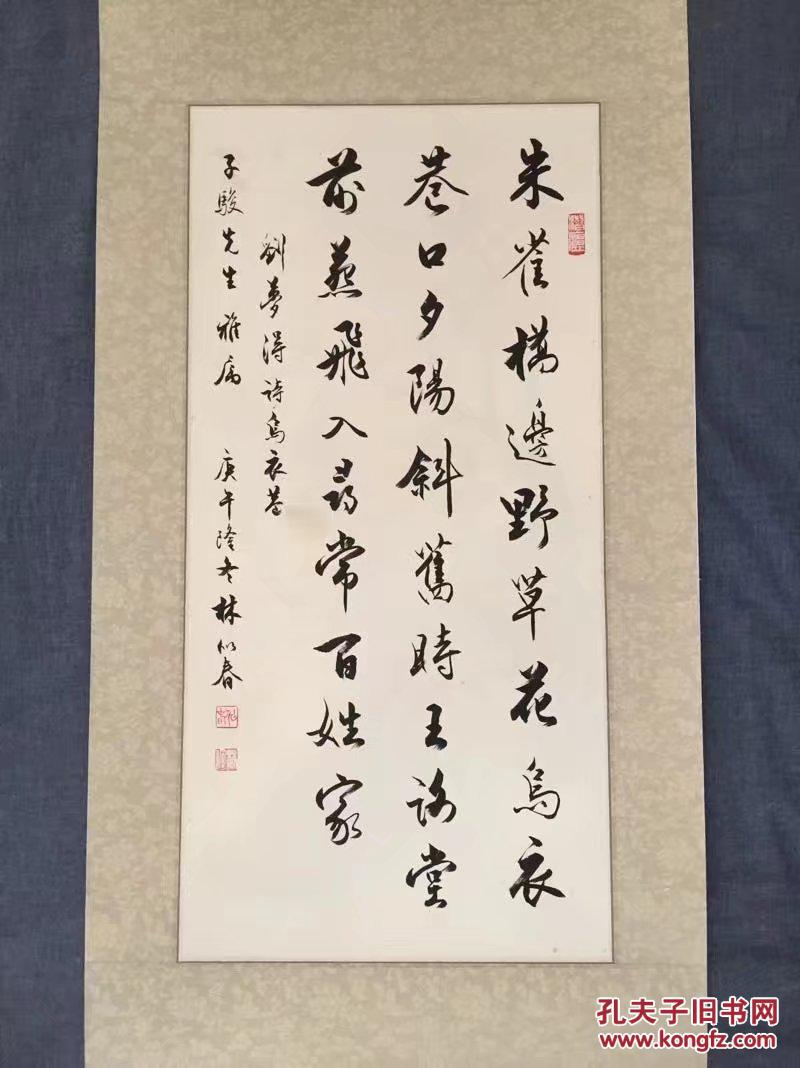 朱雀橋邊野草花烏衣
巷口夕陽斜舊時王謝堂
前燕飛入尋常百姓家
劉夢得詩烏衣巷
子駿先生雅属 庚午隆冬林似春
孔夫子旧书网
www.kongfz.com